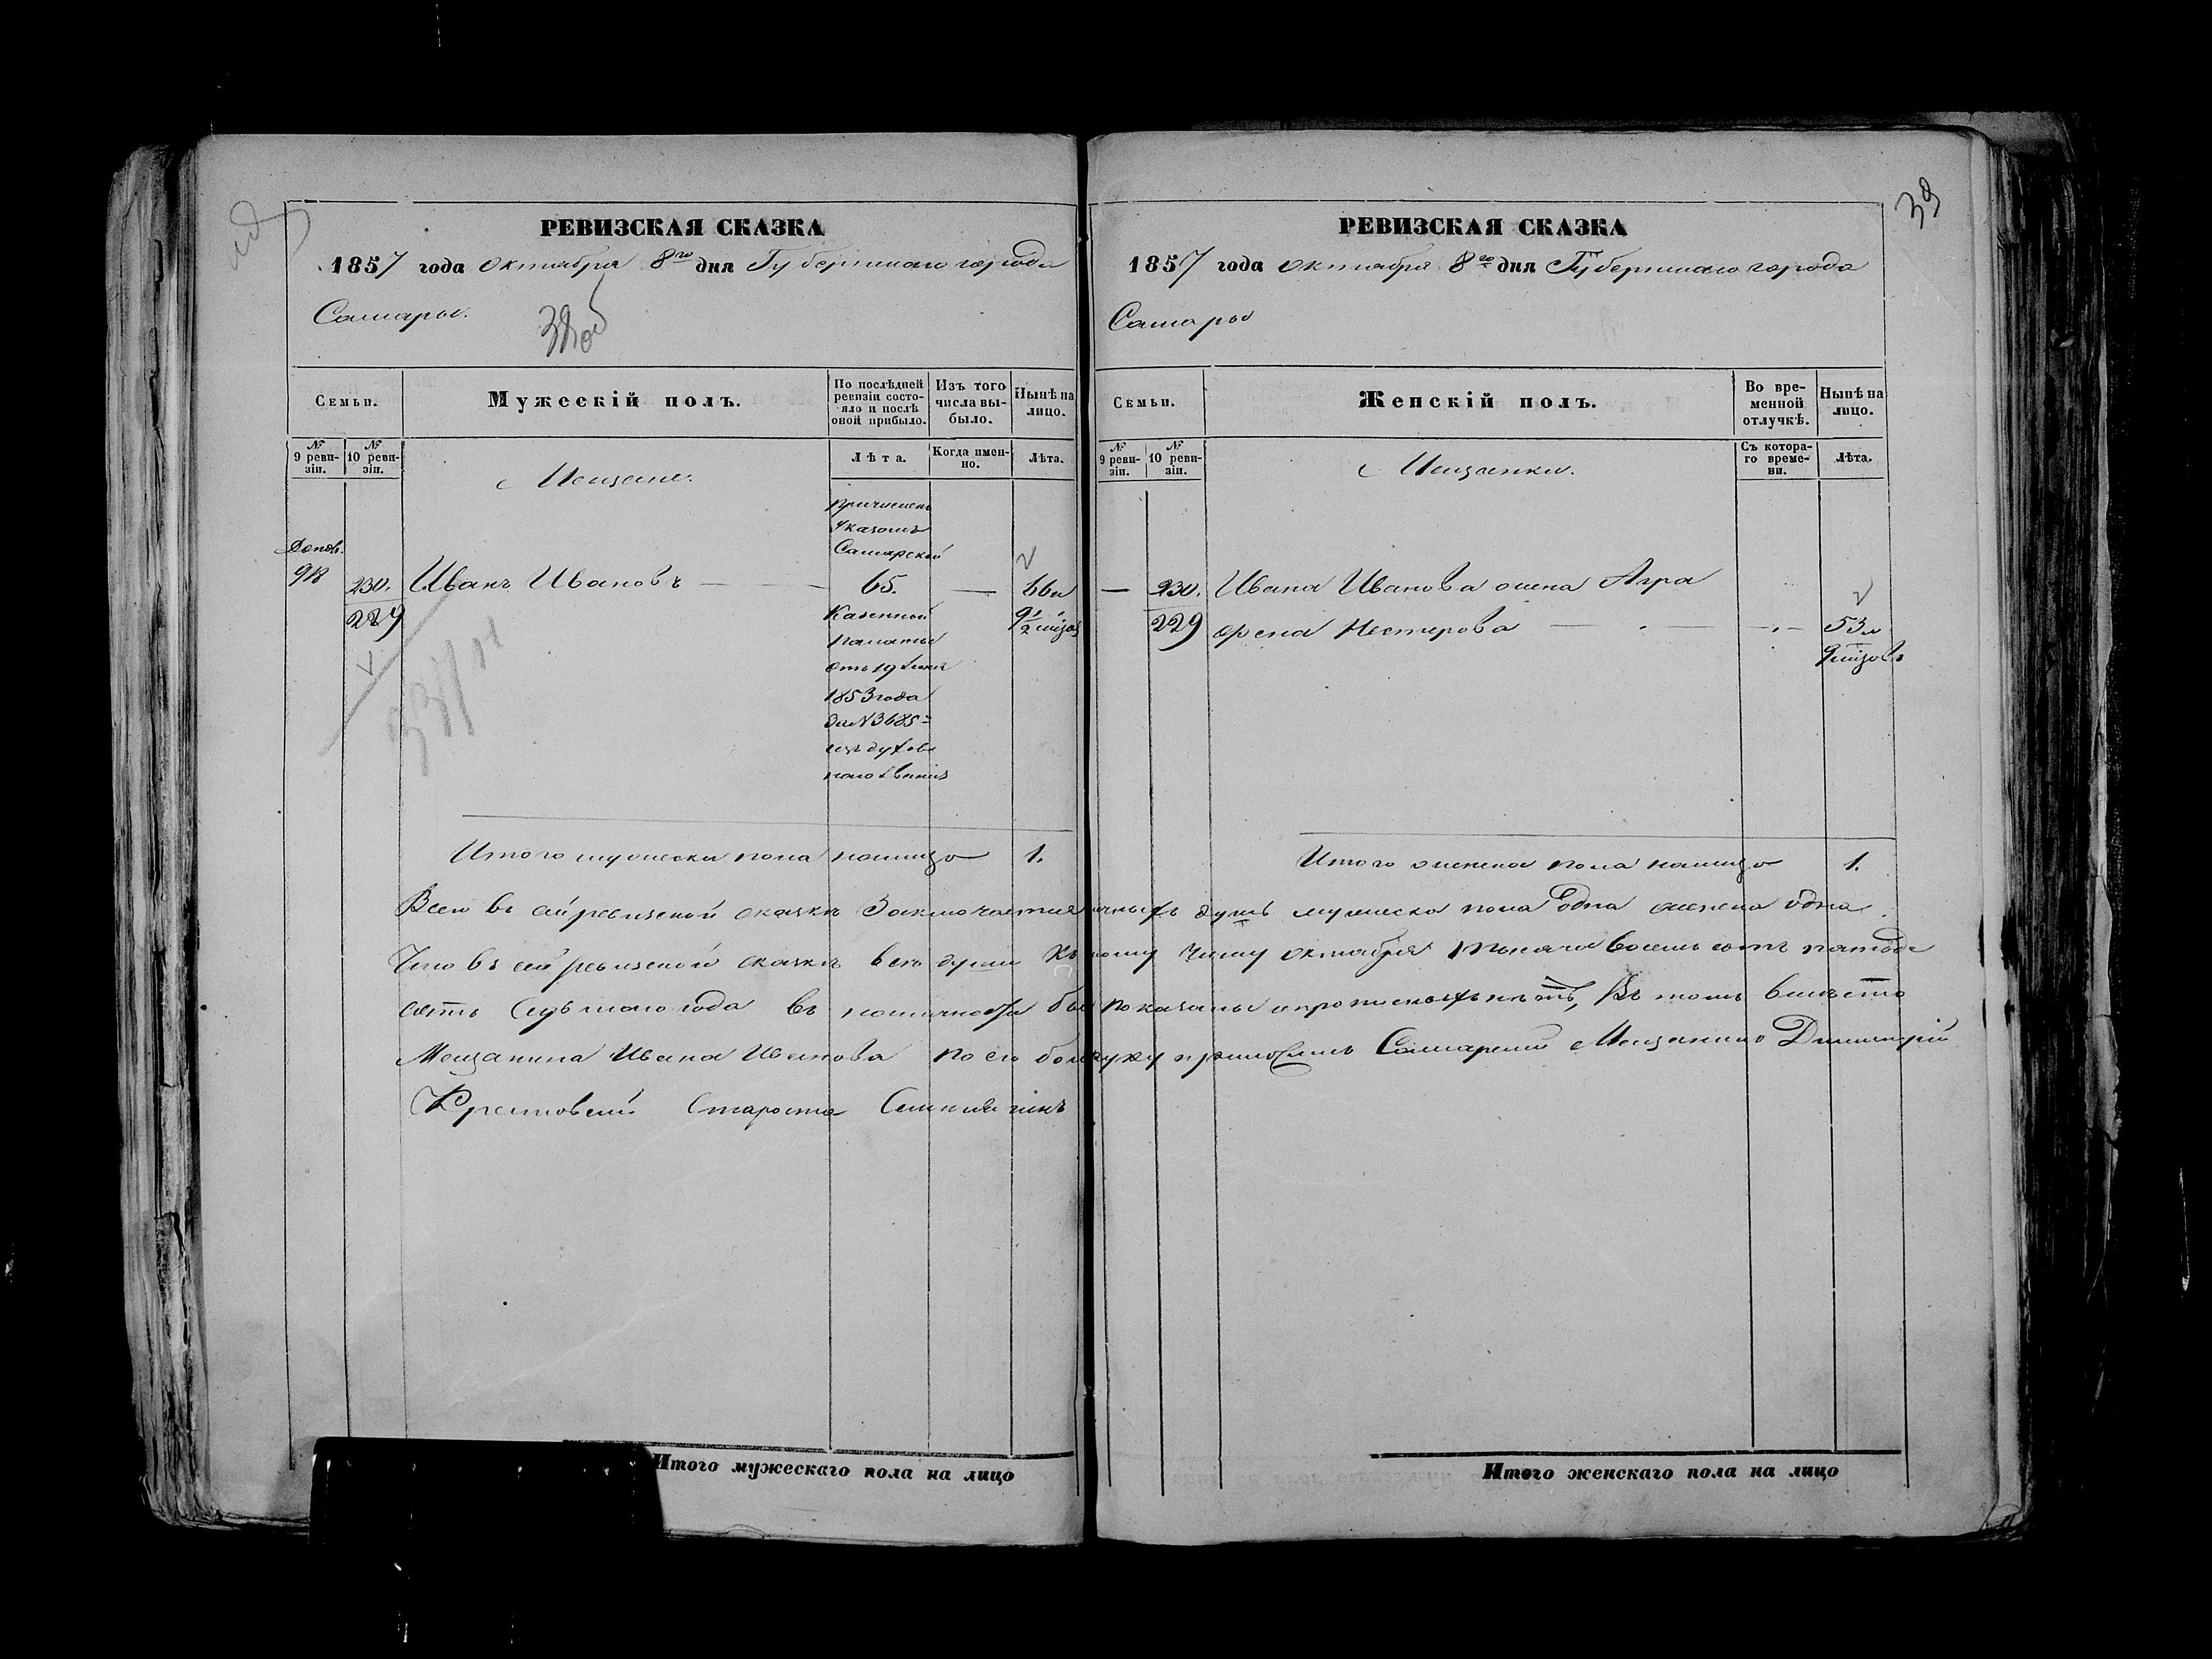 39
РЕВИЗСКАЯ СКАЗКА
1857 года Октября 8го дня Губернскаго города
Самары.
38об
Семьи.
Мужескій полъ.
По послѣдней ревизіи состояло и послѣ оной прибыло.
Изъ того числа выбыло.
Нынѣ на лицо.
№ 9 ревизіи.
№ 10 ревизіи.
Лѣта.
Когда именно.
Лѣта.
Мещане.
причисленъ
Указомъ
Самарской
918
230.
Иванъ Ивановъ
65.
229
Казенной
Палаты
отъ 19 Июня
1853 года
За № 3685
изъ духов
наго званія
Итого мужеска пола налицо 1.
РЕВИЗСКАЯ СКАЗКА
1857 года Октября 8го дня Губернскаго города
Самары
Семьи.
Женскій полъ.
Во временной отлучкѣ.
Нынѣ на лицо.
№ 9 ревизіи.
№ 10 ревизіи.
Съ котораго времени.
Лѣта.
Мещанки.
230.
Ивана Иванова жена Агра
229
фена Нестерова
53
Итого женска пола налицо 1.
Всего въ сей ревизской сказкѣ Заключается душъ мужеска пола одна женска одна
Что въ сей ревизской сказкѣ всѣ души къ Октября тысяча восемь сотъ пятьде
сятъ Седьмаго года въ наличности показаны и прописныхъ нѣтъ, Въ томъ вмѣсто
Мещанина Ивана Иванова по его Самарскій Мещанинъ Димитрій
Староста
Итого мужескаго пола на лицо
Итого женскаго пола на лицо